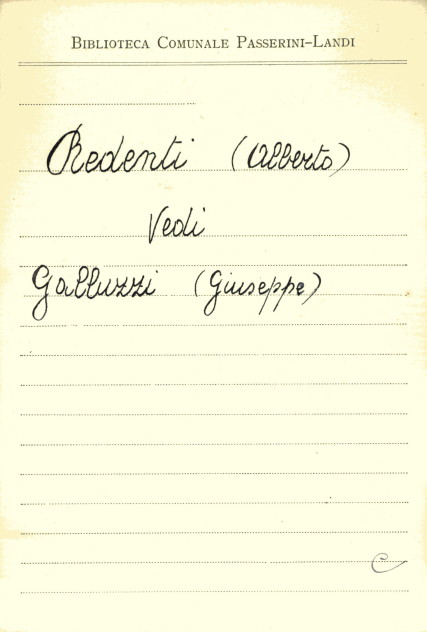 Biblioteca Comunale Passerini-Landi
Redenti (Alberto)
Vedi
Galluzzi (Giuseppe)